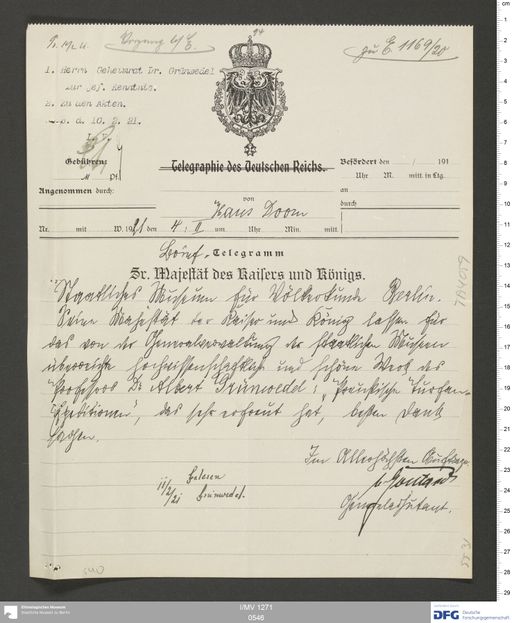 zu E. 1169/20
1. Herrn Geheimrat Dr. Grünwedel
zur gef. Kenntnis.
2. Zu den Akten.
d. 10. 2. 21.
Gebühren:
Pf.
Telegraphie des Deutschen Reichs.
Befördert den / 191
Uhr M. mitt. in Ltg.
Angenommen durch:
an
von
durch
Haus Doorn
Nr. mit W. 1921 den 4. II um Uhr Min. mitt.
Brief-Telegramm
Sr. Majestät des Kaisers und Königs.
Staatliches Museum für Völkerkunde Berlin.
Seine Majestät der Kaiser und König lassen für
das von der Generalverwaltung der staatlichen Museen
überreichte hochwissenschaftliche und schöne Werk des
Professors Dr. Albert Grünwedel: "Preussische Turfan-
Expeditionen", das sehr erfreut hat, besten Dank
sagen.
Im Allerhöchsten Auftrage
v. Gontard
Generaladjutant.
Gelesen
11/2/21 Grünwedel.
I/MV 1271
0546
Ethnologisches Museum
Staatliche Museen zu Berlin
DFG Deutsche
Forschungsgemeinschaft